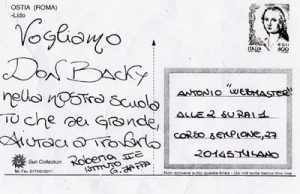 OSTIA (ROMA)
-Lido
Vogliamo
DON BACKY
nella nostra scuola
TU che sei Grande,
Aiutaci a Trovarlo
Roberta II E
ISTITUTO
Sun Collection
ITALIA
800
ANTONIO "WEBMASTER"
CORSO SEMPIONE, 27
20145 MILANO
Non scrivere sotto questa linea - Do not write below this line